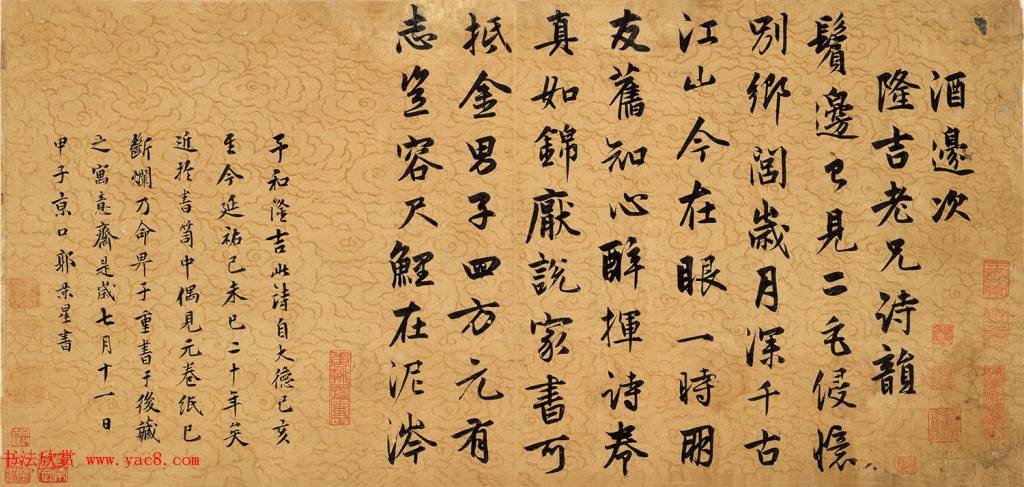 酒邊次
隆吉老兄詩韻
鬢邊已見二毛侵憶
別鄉閭歲月深千古
江山今在眼一時朋
友舊知心醉揮詩卷
真如錦厭說家書可
抵金男子四方元有
志豈容尺鯉在泥涔
予和隆吉此詩自大德己亥
至今延祐己未已二十年矣
近於書笥中偶見元卷紙已
斷爛乃命畀予重書于後藏
之寓意齋是歲七月十一日
甲子京口郭景星書
书法欣赏 www.yac8.com